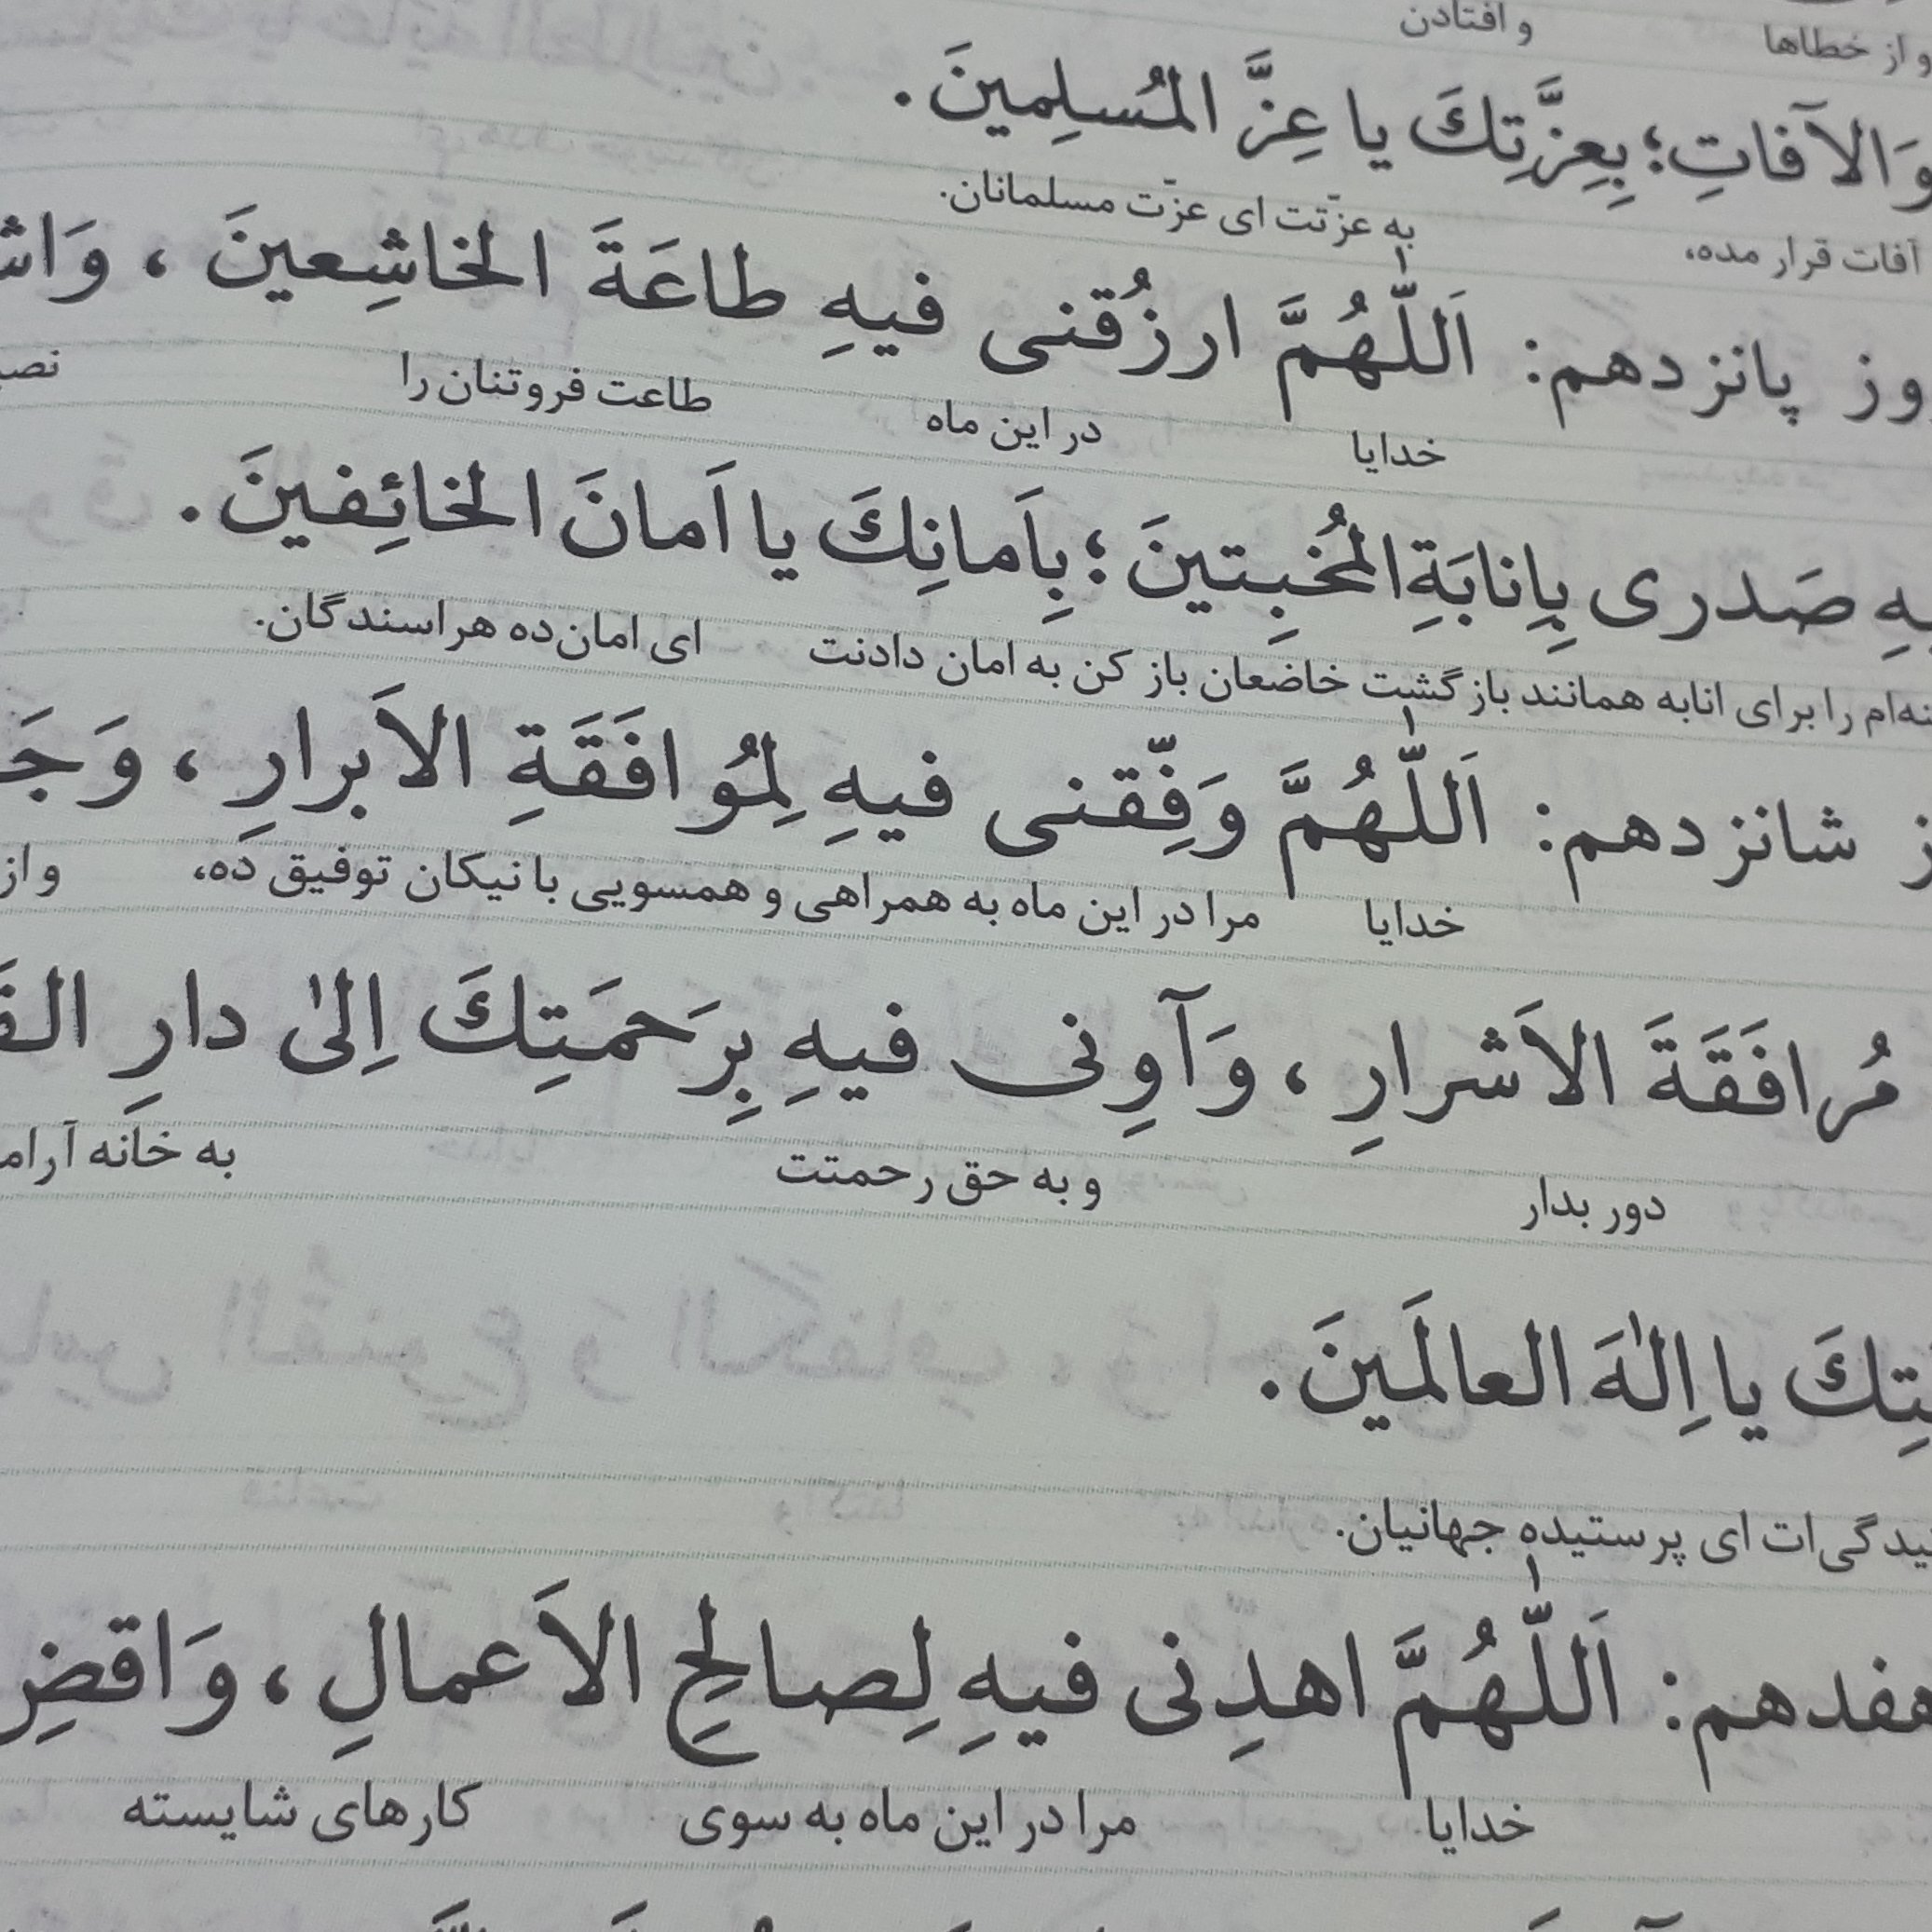 و از خطاها و افتادن
وَالآفاتِ؛ بِعِزَّتِكَ يا عِزَّ المُسلِمينَ.
آفات قرار مده، به عزّتت ای عزّت مسلمانان.
پانزدهم: اَللّٰهُمَّ ارزُقنى فيهِ طاعَةَ الخاشِعينَ ،
خدایا در این ماه طاعت فروتنان را
صَدرى بِاِنابَةِ المُخبِتينَ؛ بِاَمانِكَ يا اَمانَ الخائِفينَ.
را برای انابه همانند بازگشت خاضعان باز کن به امان دادنت ای امان‌ده هراسندگان.
شانزدهم: اَللّٰهُمَّ وَفِّقنى فيهِ لِمُوافَقَةِ الاَبرارِ ،
خدایا مرا در این ماه به همراهی و همسویی با نیکان توفیق ده، و از
مُرافَقَةَ الاَشرارِ ، وَآوِنى فيهِ بِرَحمَتِكَ اِلىٰ دارِ
دور بدار و به حق رحمتت به خانه
يا اِلٰهَ العالَمينَ.
ای پرستیده جهانیان.
هفدهم: اَللّٰهُمَّ اهدِنى فيهِ لِصالِحِ الاَعمالِ ، وَاقضِ
خدایا مرا در این ماه به سوی کارهای شایسته